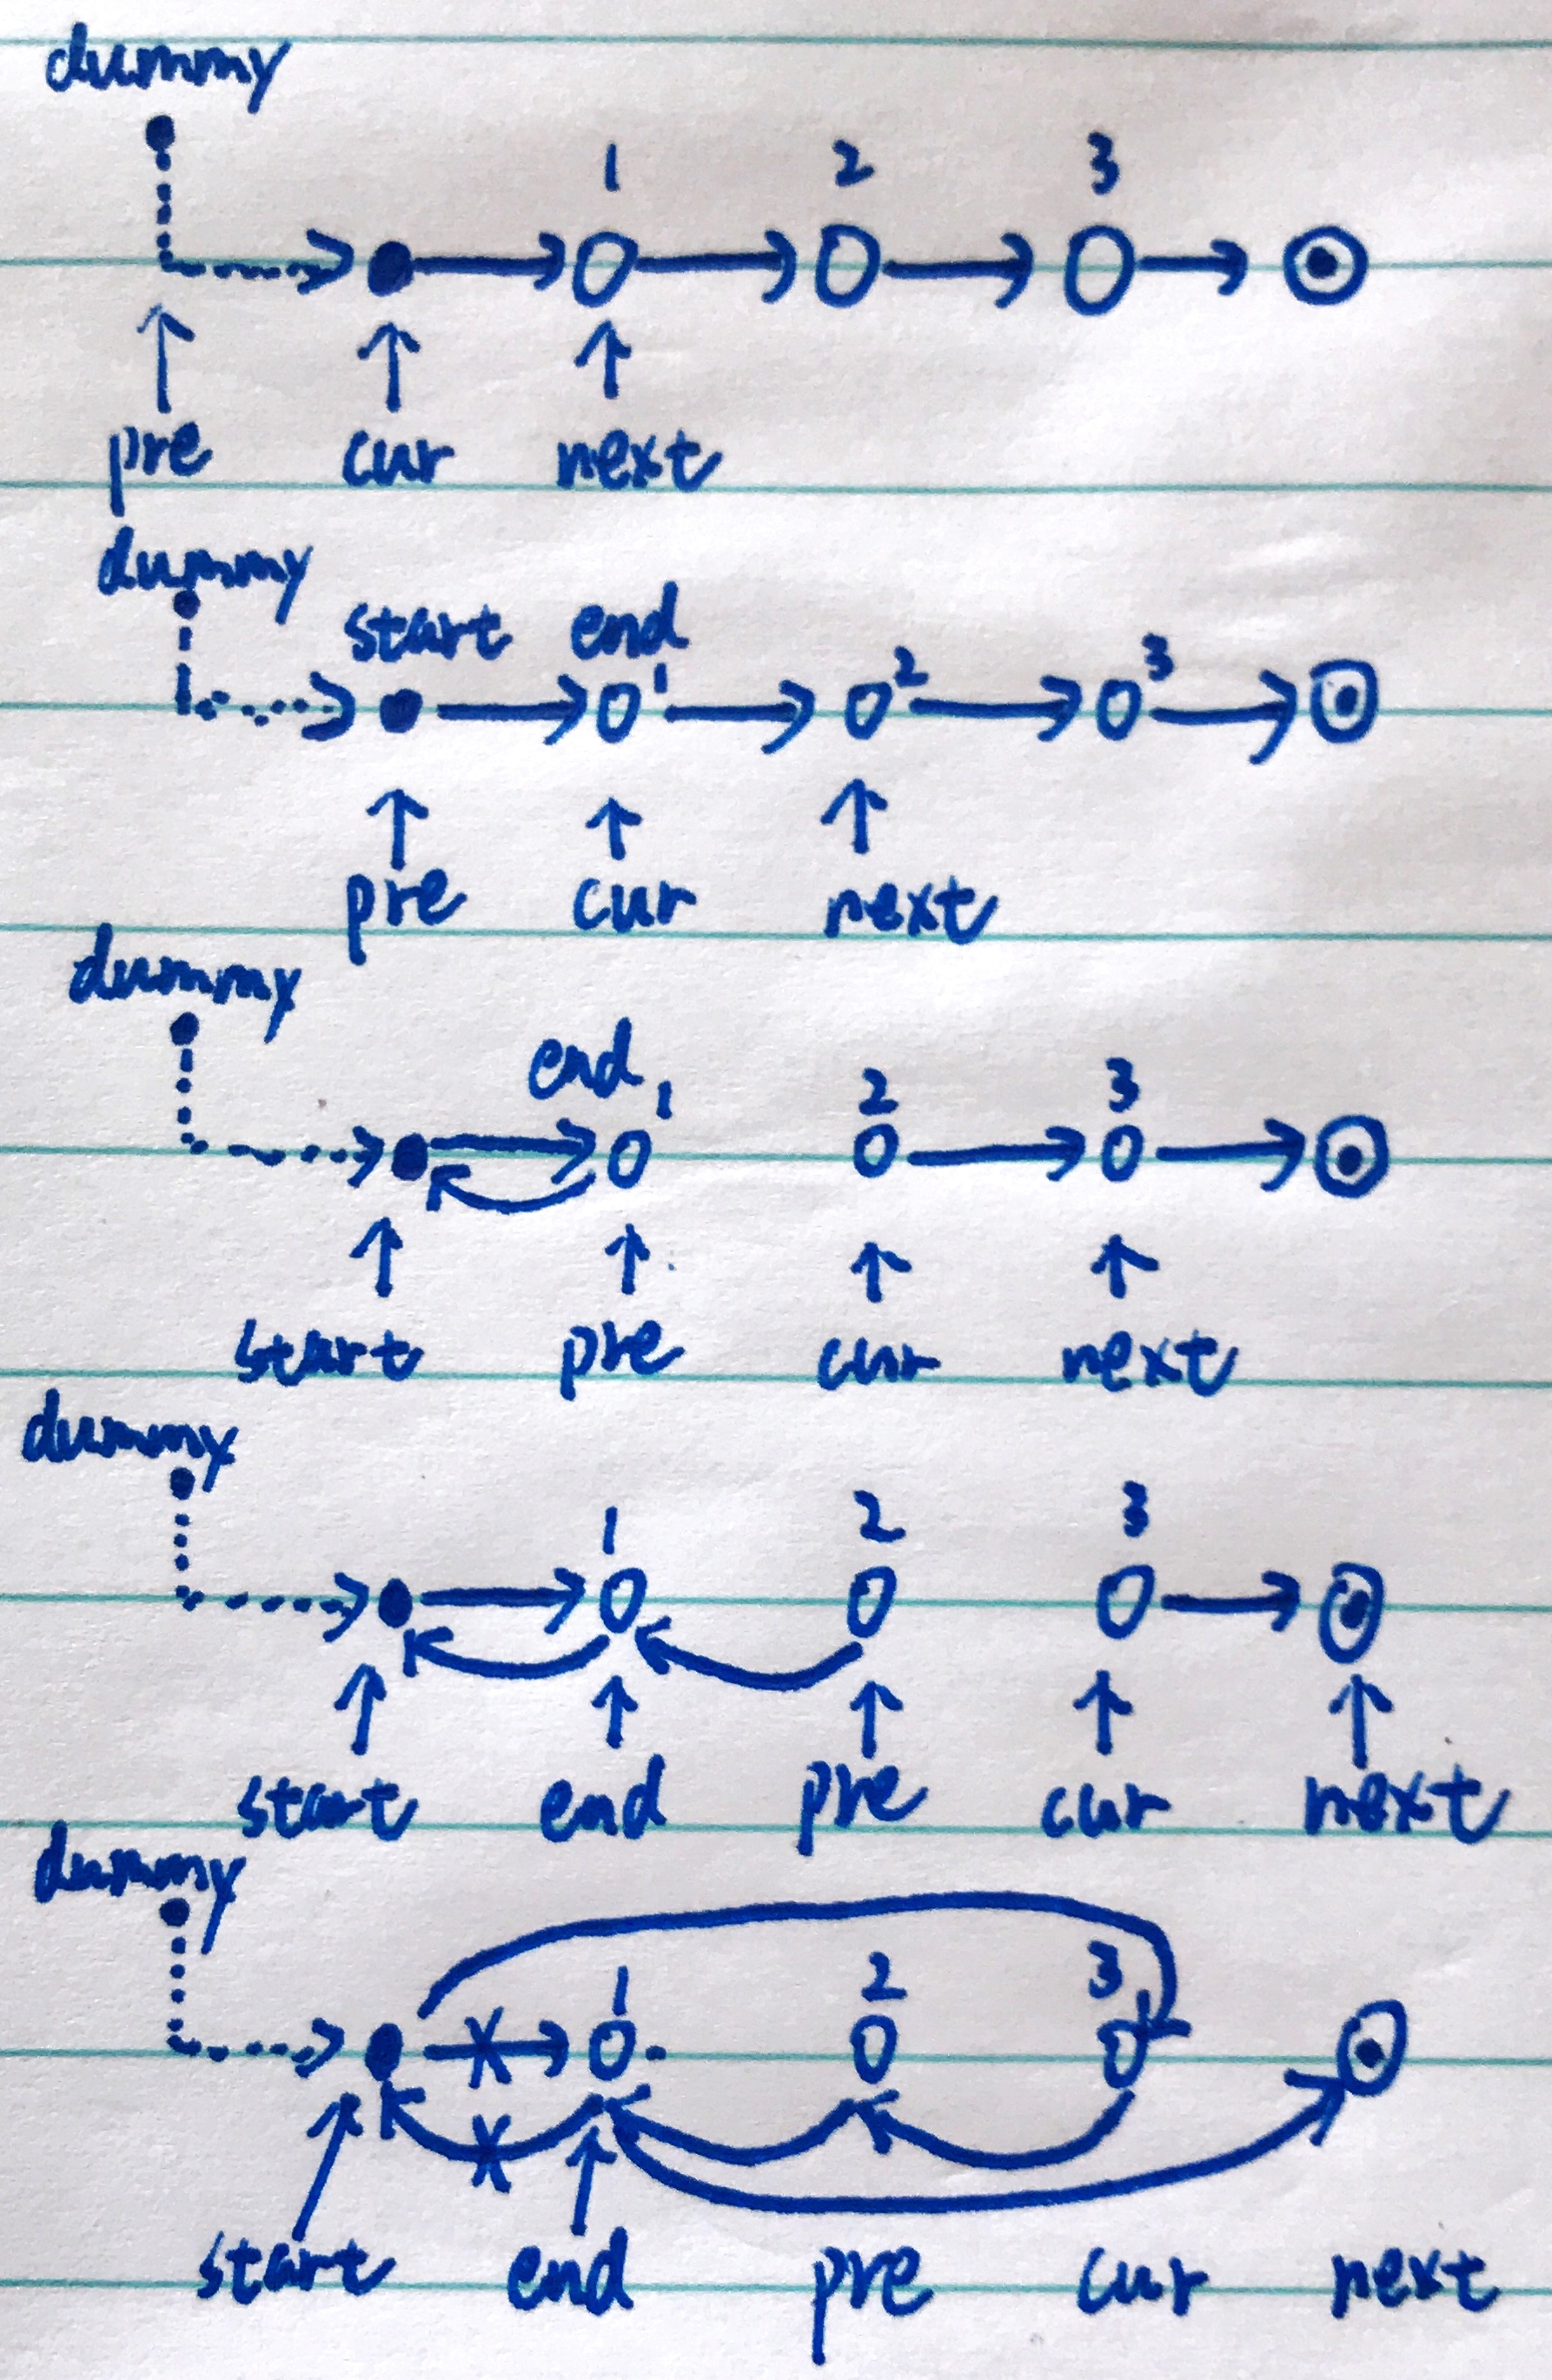 dummy
1 2 3
pre cur next
dummy
start end
1 2 3
pre cur next
dummy
end 1 2 3
start pre cur next
dummy
1 2 3
start end pre cur next
dummy
1 2 3
start end pre cur next